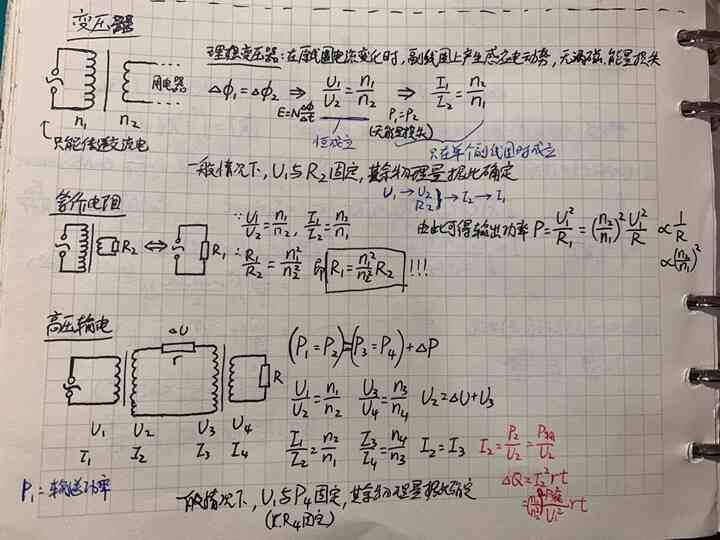 变压器
理想变压器:在原线圈电流变化时,副线圈上产生感应电动势,无漏磁、能量损失
用电器
n₁ n₂
只能传递交流电
Δφ₁=Δφ₂ ⇒ U₁/U₂=n₁/n₂ ⇒ I₁/I₂=n₂/n₁
E=NΔφ/Δt
P₁=P₂
(无能量损失)
恒成立
只在单个副线圈时成立
一般情况下,U₁与R₂固定,其余物理量据此确定
U₁→U₂ R₂}→I₂→I₁
等价电阻
R₂ ⇔ R₁
∵U₁/U₂=n₁/n₂, I₁/I₂=n₂/n₁
∴R₁/R₂=n₁²/n₂² 即 R₁=n₁²/n₂² R₂ !!!
由此可得输出功率 P=U₁²/R₁=(n₂/n₁)² U₁²/R ∝1/R
∝(n₂/n₁)²
高压输电
ΔU
r
R
U₁ U₂ U₃ U₄
I₁ I₂ I₃ I₄
(P₁=P₂)=(P₃=P₄)+ΔP
U₁/U₂=n₁/n₂ U₃/U₄=n₃/n₄ U₂=ΔU+U₃
I₁/I₂=n₂/n₁ I₃/I₄=n₄/n₃ I₂=I₃
I₂=P₂/U₂=
ΔQ=I₂²rt
P₁=输送功率
一般情况下,U₁与P₄固定,其余物理量据此确定
(或R₄固定)